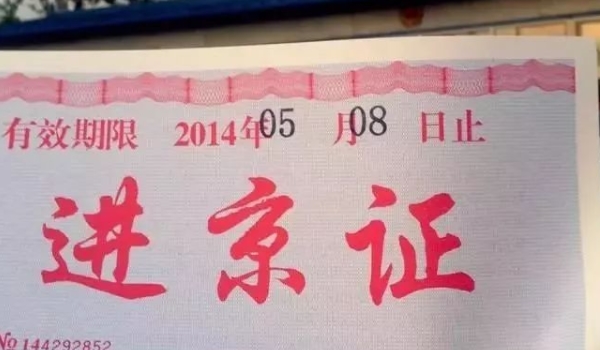 有效期限 2014年05月08日止
进京证
No 144292852